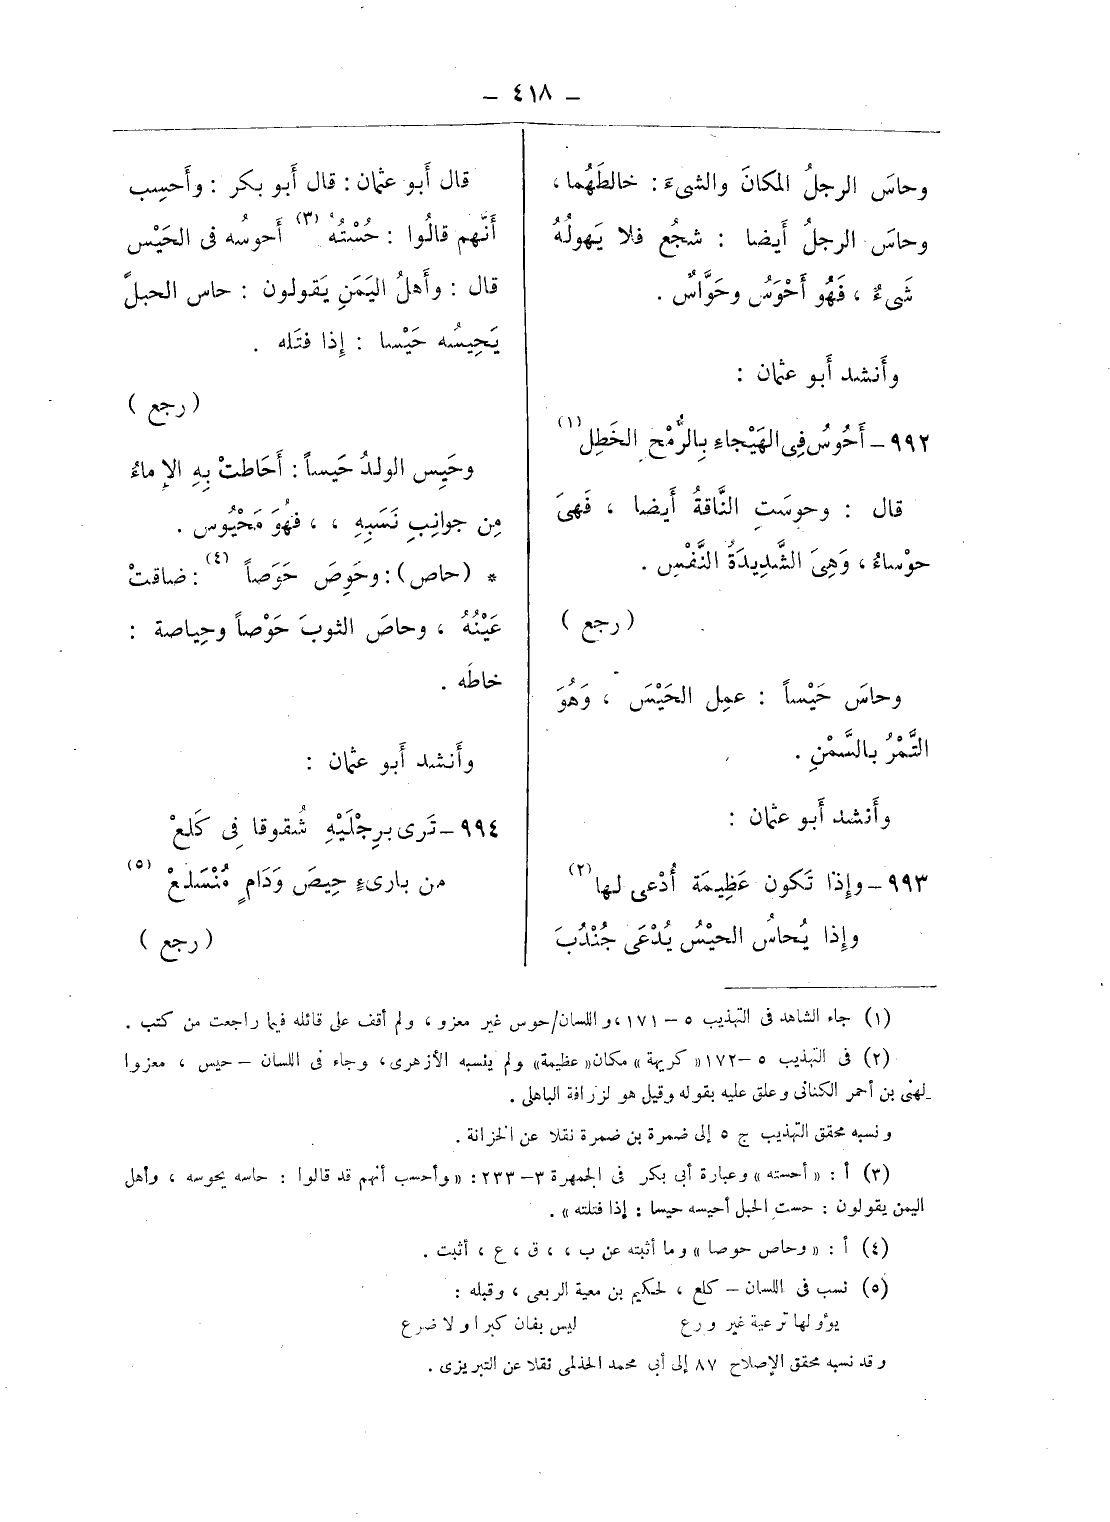 – ٤١٨ –
وحاسَ الرجلُ المكانَ والشىءَ : خالطَهُما ،
وحاسَ الرجلُ أيضا : شجُع فلا يَهولُهُ
شَىءٌ ، فَهُو أَحْوَسُ وحَوَّاسٌ .
وأَنشد أَبو عثمان :
٩٩٢ – أَحْوسُ فِى الهَيْجاءِ بِالرُّمْحِ الخَطِل (١)
قال : وحوسَتِ النَّاقةُ أَيضا ، فَهِىَ
حوْساءُ ، وَهِىَ الشَّدِيدَةُ النَّفْسِ .
( رجع )
وحاسَ حَيْساً : عمِل الحَيْسَ ، وَهُوَ
التَّمْرُ بالسَّمْنِ .
وأَنشد أَبو عثمان :
٩٩٣ – وإِذا تَكون عَظِيمَة أُدْعى لها (٢)
وإِذا يُحاسُ الحيْسُ يُدْعَى جُنْدُبَ
قال أَبو عثمان : قال أَبو بكر : وأَحسِب
أَنَّهم قالُوا : حُسْتُهُ (٣) أَحوسُه فى الحَيْس
قال : وأَهلُ اليَمَنِ يَقولون : حاس الحبلَ
يَحِيسُه حَيْسا : إِذا فتَله .
( رجع )
وحَيِس الولدُ حَيساً : أَحَاطتْ بِهِ الإِماءُ
مِن جوانِبِ نَسَبِهِ ، ، فهُوَ مَحْيُوس .
* ( حاص ) : وحَوِصَ حَوَصاً (٤) : ضاقتْ
عَيْنُهُ ، وحاصَ الثوبَ حَوْصاً وحِياصة :
خاطَه .
وأَنشد أَبو عثمان :
٩٩٤ – تَرى بِرِجْلَيْهِ شُقوقا فِى كَلَعْ
من بارىءٍ حِيصَ وَدَامٍ مُنْسَلِعْ (٥)
( رجع )
(١) جاء الشاهد فى التهذيب ٥ – ١٧١ ، و اللسان/حوس غير معزو ، ولم أقف على قائله فيما راجعت من كتب .
(٢) فى التهذيب ٥ – ١٧٢ « كريهة » مكان « عظيمة » ولم ينسبه الأزهرى ، وجاء فى اللسان – حيس ، معزوا
لهنى بن أحمر الكنانى وعلق عليه بقوله وقيل هو لزرافة الباهلى .
ونسبه محقق التهذيب ج ٥ إلى ضمرة بن ضمرة نقلا عن الخزانة .
(٣) أ : « أحسته » وعبارة أبى بكر فى الجمهرة ٣ – ٢٣٣ : « وأحسب أنهم قد قالوا : حاسه يحوسه ، وأهل
اليمن يقولون : حست الحبل أحيسه حيسا : إذا فتلته » .
(٤) أ : « وحاص حوصا » وما أثبته عن ب ، ، ق ، ع ، أثبت .
(٥) نسب فى اللسان – كلع ، لحكيم بن معية الربعى ، وقبله :
يؤولها ترعية غير ورع ليس بفان كبرا ولا ضرع
وقد نسبه محقق الإصلاح ٨٧ إلى أبى محمد الحذلمى نقلا عن التبريزى .